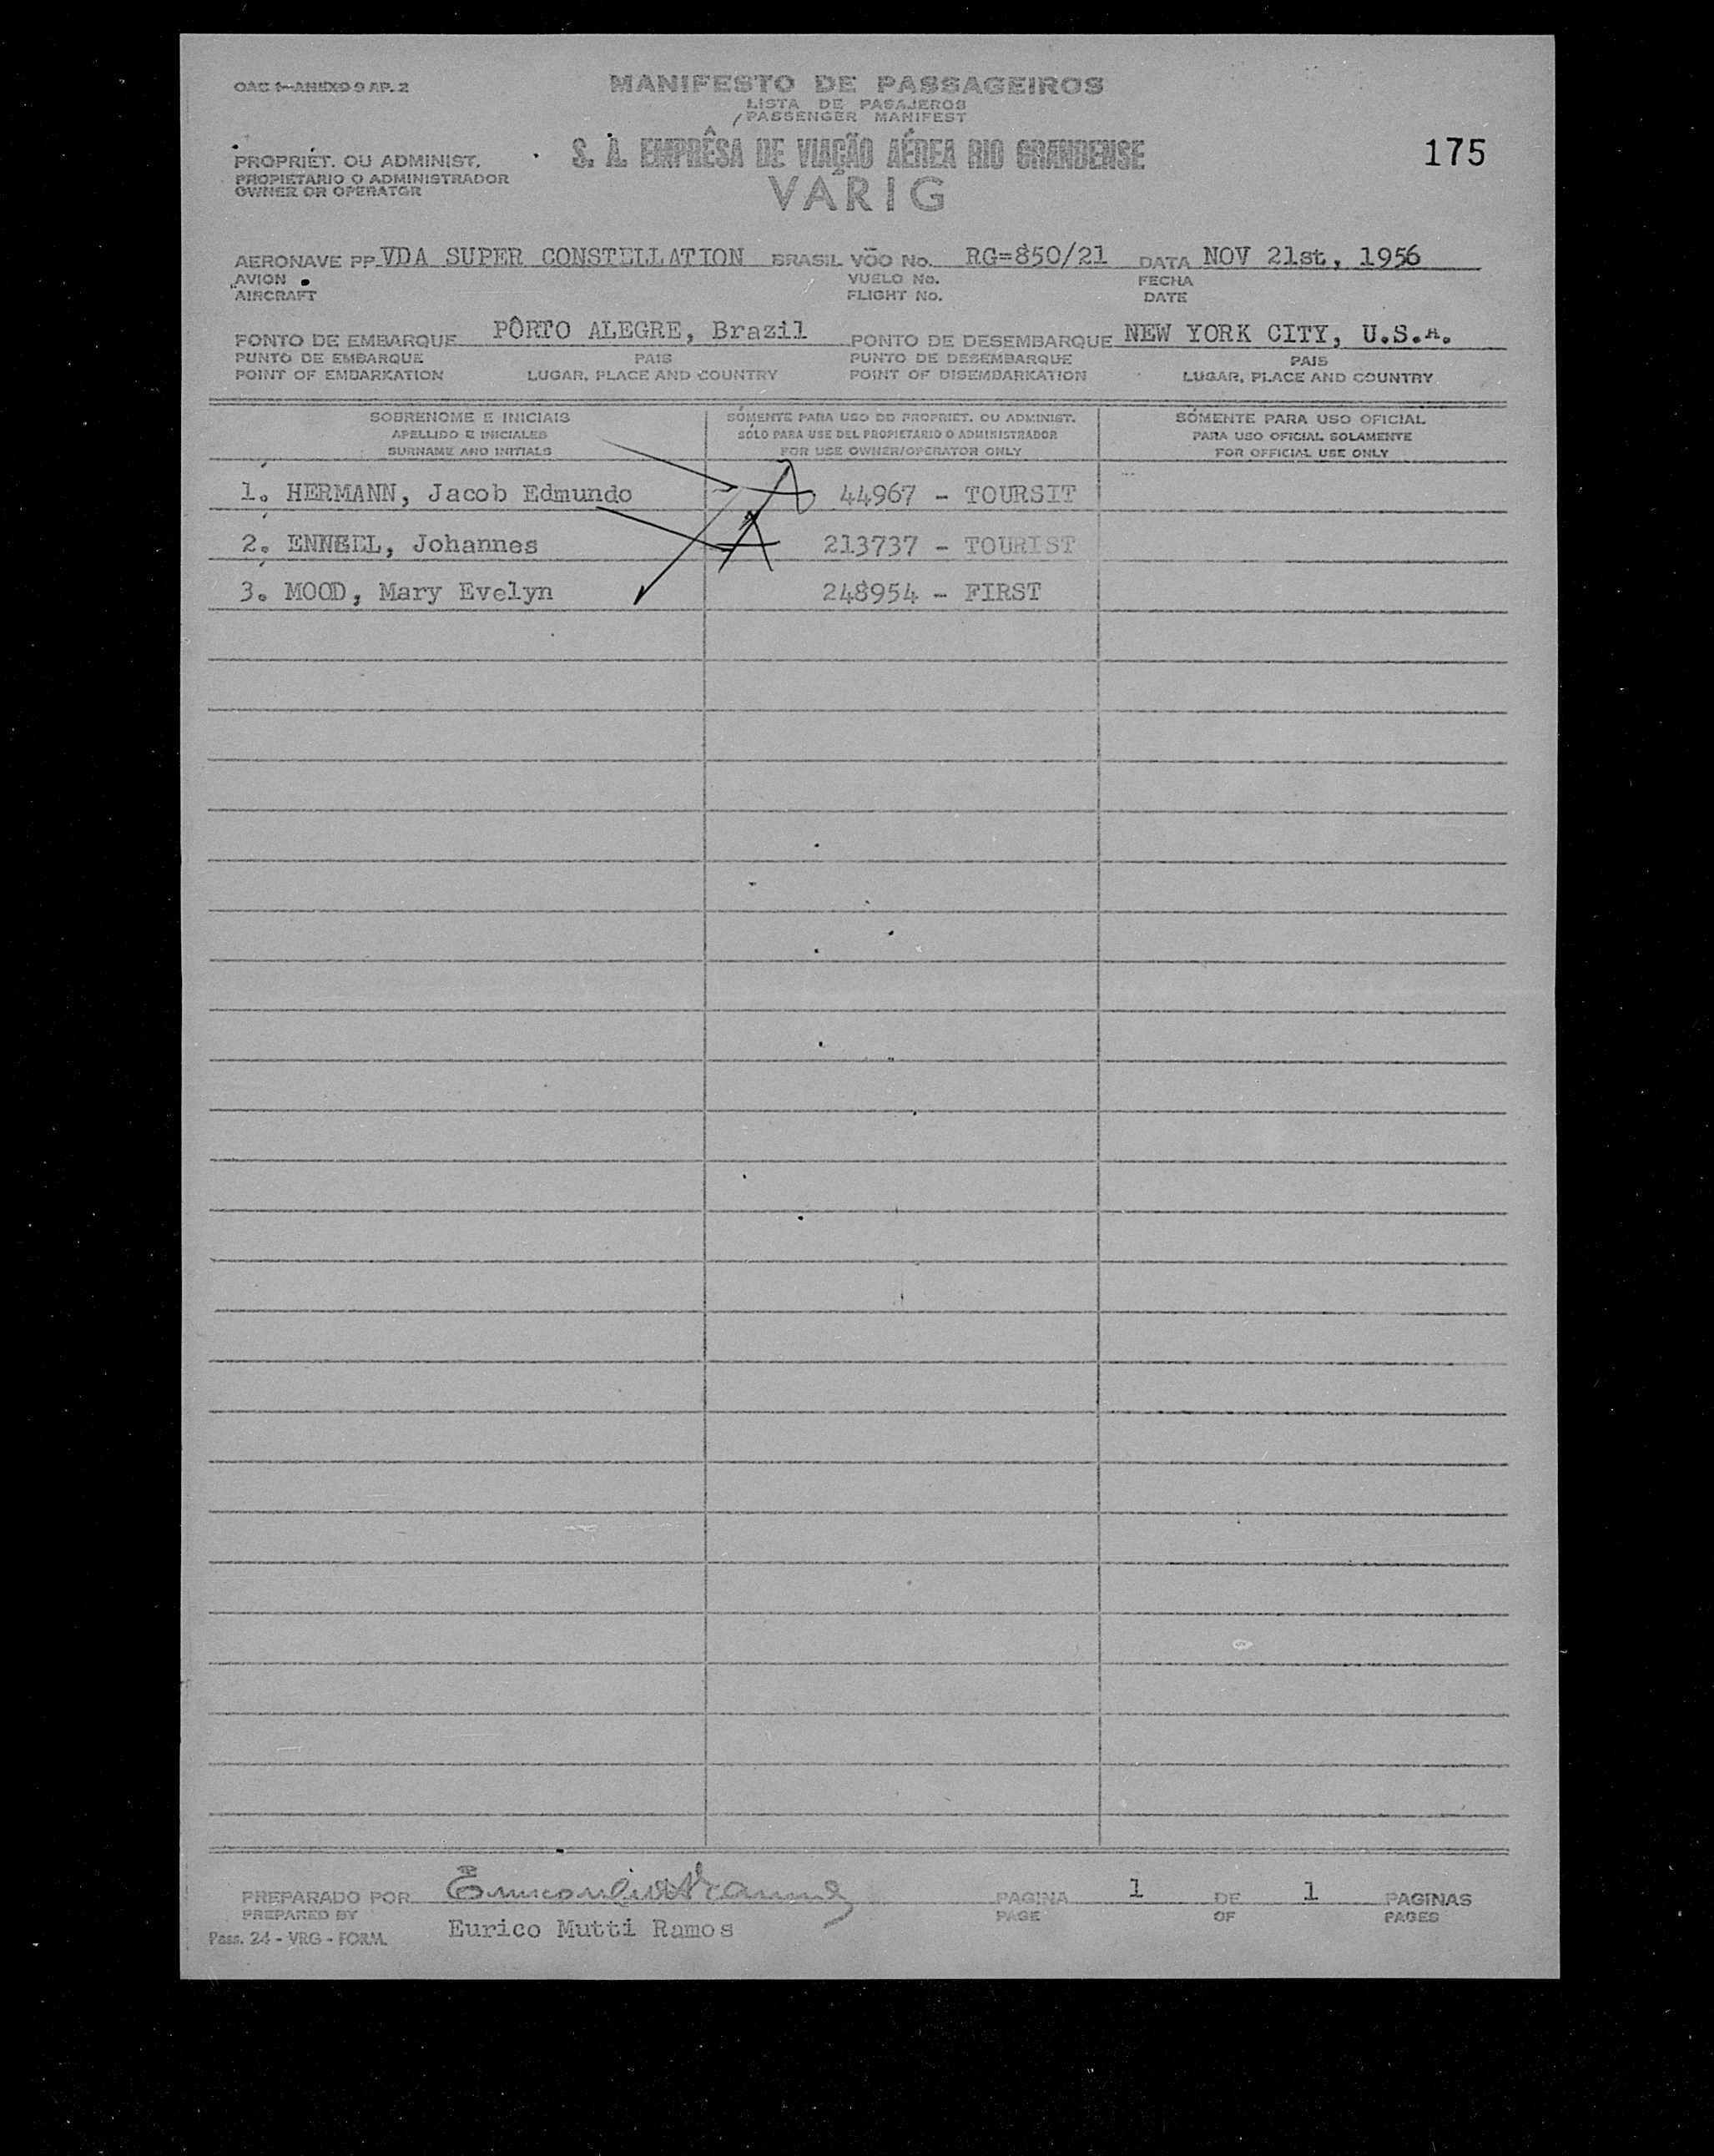 OAC 1-ANEXO 9 AP. 2
MANIFESTO DE PASSAGEIROS
LISTA DE PASAJEROS
PASSENGER MANIFEST
PROPRIÉT. OU ADMINIST.
PROPIETARIO O ADMINISTRADOR
OWNER OR OPERATOR
S. A. EMPRÊSA DE VIAÇÃO AÉREA RIO GRANDENSE
VARIG
175
AERONAVE PP VDA SUPER CONSTELLATION BRASIL VÔO No. RG=850/21 DATA NOV 21st, 1956
AVION VUELO No. FECHA
AIRCRAFT FLIGHT No. DATE
PONTO DE EMBARQUE PÔRTO ALEGRE, Brazil PONTO DE DESEMBARQUE NEW YORK CITY, U.S.A.
PUNTO DE EMBARQUE PAIS PUNTO DE DESEMBARQUE PAIS
POINT OF EMBARKATION LUGAR, PLACE AND COUNTRY POINT OF DISEMBARKATION LUGAR, PLACE AND COUNTRY
SOBRENOME E INICIAIS SÓMENTE PARA USO DO PROPRIET. OU ADMINIST. SÓMENTE PARA USO OFICIAL
APELLIDO E INICIALES SÓLO PARA USE DEL PROPIETARIO O ADMINISTRADOR PARA USO OFICIAL SOLAMENTE
SURNAME AND INITIALS FOR USE OWNER/OPERATOR ONLY FOR OFFICIAL USE ONLY
1. HERMANN, Jacob Edmundo A 44967 - TOURSIT
2. Johannes A 213737 - TOURIST
3. MOOD, Mary Evelyn 248954 - FIRST
PREPARADO POR PAGINA 1 DE 1 PAGINAS
PREPARED BY Eurico Mutti Ramos PAGE OF PAGES
Pass. 24 - VRG - FORM.